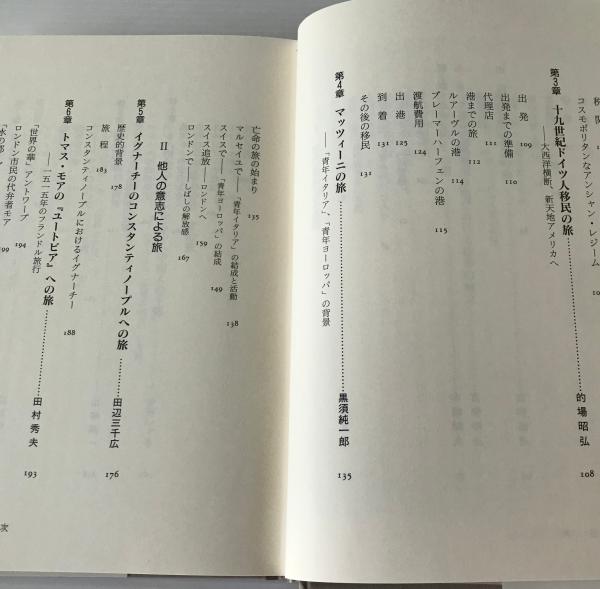 コスモポリタンなアンシャン・レジーム
第3章 十九世紀ドイツ人移民の旅……的場昭弘 108
――大西洋横断、新天地アメリカへ
出発 109
出発までの準備 110
代理店 111
港までの旅 112
ルアーヴルの港 114
ブレーマーハーフェンの港 115
渡航費用 124
出港 125
到着 131
その後の移民 131
第4章 マッツィーニの旅……黒須純一郎 135
――「青年イタリア」、「青年ヨーロッパ」の背景
亡命の旅の始まり 135
マルセイユで――「青年イタリア」の結成と活動 138
スイスで――「青年ヨーロッパ」の結成 149
スイス追放――ロンドンへ 159
ロンドンで――しばしの解放感 167
II 他人の意志による旅
第5章 イグナーチーのコンスタンティノープルへの旅……田辺三千広 176
歴史的背景 178
旅程 183
コンスタンティノープルにおけるイグナーチー 188
第6章 トマス・モアの『ユートピア』への旅……田村秀夫 193
――一五一五年のフランドル旅行
「世界の華」アントワープ 194
ロンドン市民の代弁者モア
次